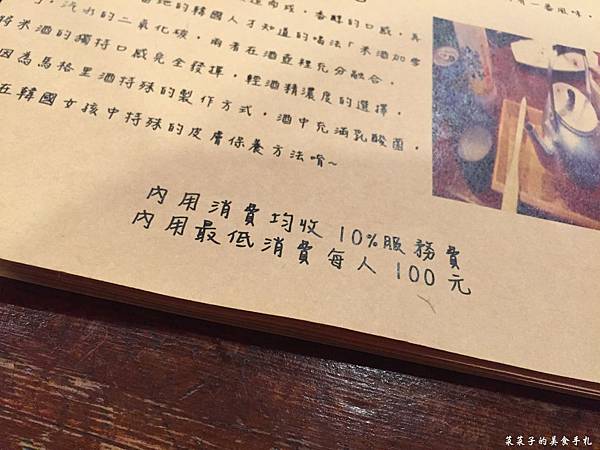 香醇的口感，真
當地的韓國人才知道的喝法「米酒加雪
，汽水的二氧化碳，兩者在酒壺裡充分融合，
將米酒的獨特口感完全發揮，輕酒精濃度的選擇，
因為馬格里酒特殊的製作方式，酒中充滿乳酸菌，
在韓國女孩中特殊的皮膚保養方法唷~
一番風味，
內用消費均收10%服務費
內用最低消費每人100元
菜菜子的美食手札